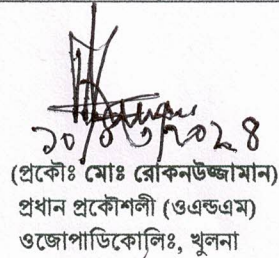 ১০/০৩/২০২৪
(প্রকৌঃ মোঃ রোকনউজ্জামান)
প্রধান প্রকৌশলী (ওএন্ডএম)
ওজোপাডিকোলিঃ, খুলনা